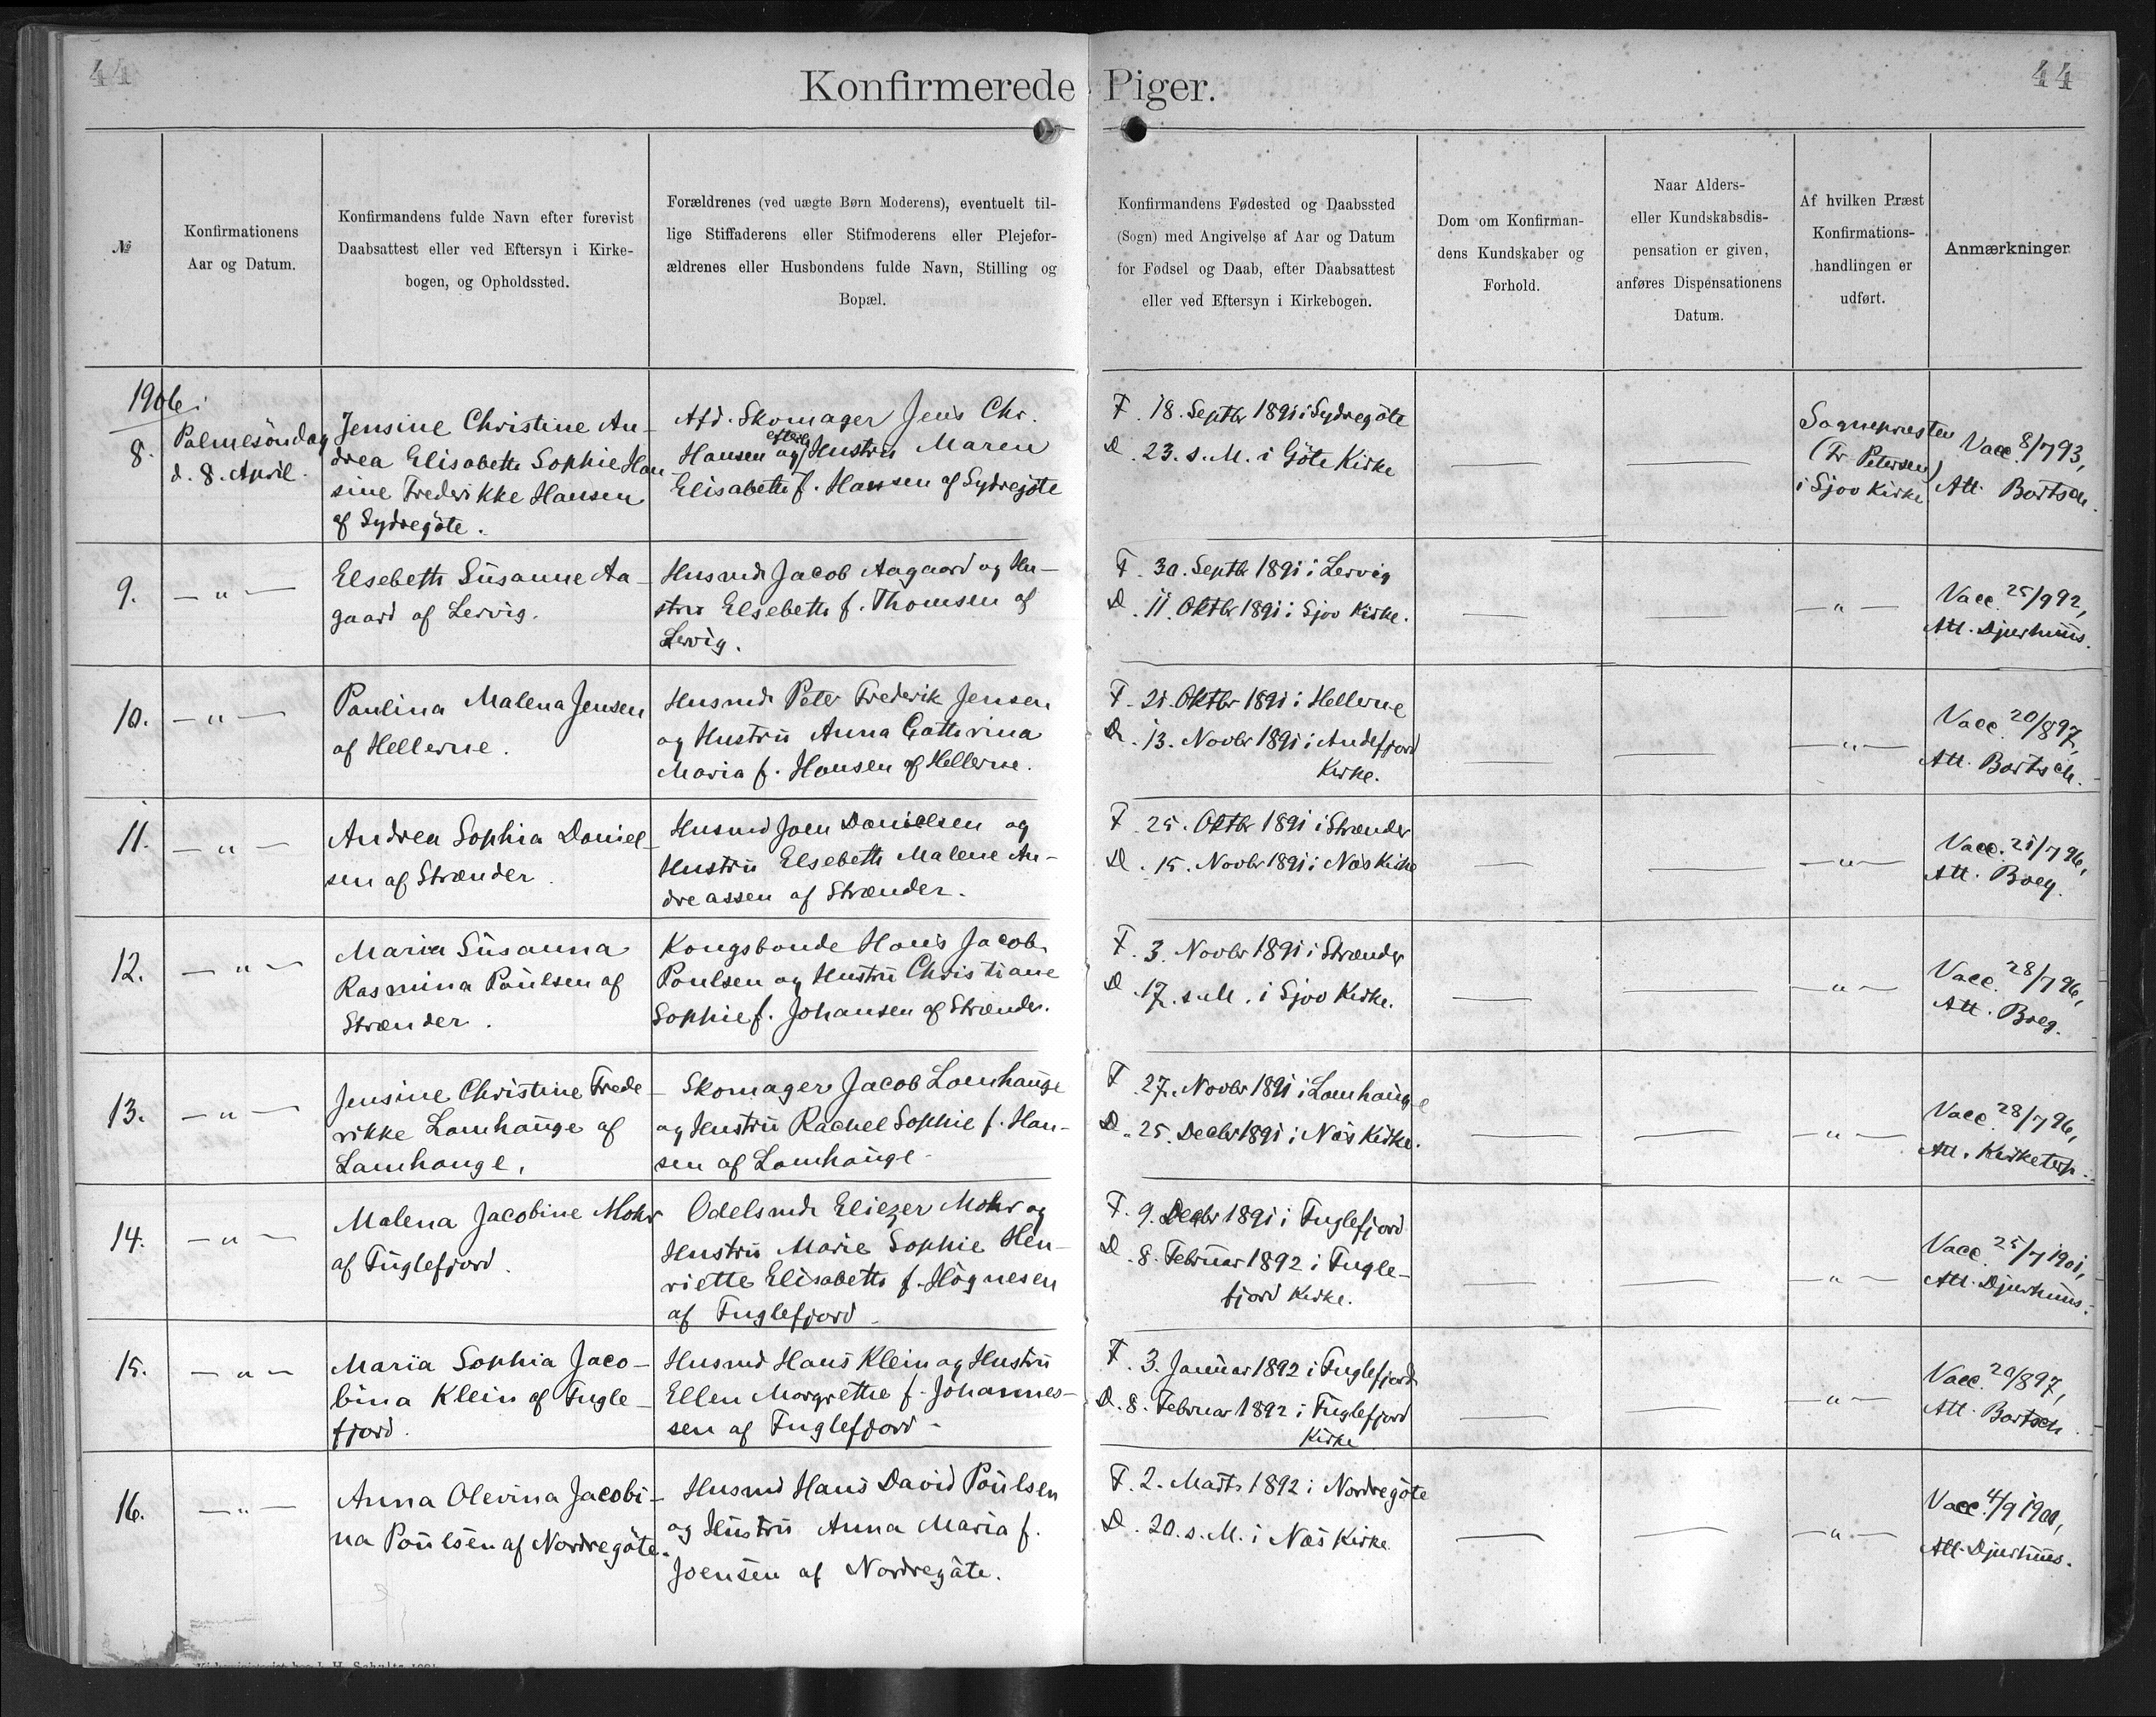 44
Konfirmerede Piger.
44
№
Konfirmationens
Aar og Datum.
Konfirmandens fulde Navn efter forevist
Daabsattest eller ved Eftersyn i Kirke-
bogen, og Opholdssted.
Forældrenes (ved uægte Børn Moderens), eventuelt til-
lige Stiffaderens eller Stifmoderens eller Plejefor-
ældrenes eller Husbondens fulde Navn, Stilling og
Bopæl.
Konfirmandens Fødested og Daabssted
(Sogn) med Angivelse af Aar og Datum
for Fødsel og Daab, efter Daabsattest
eller ved Eftersyn i Kirkebogen.
Dom om Konfirman-
dens Kundskaber og
Forhold.
Naar Alders-
eller Kundskabsdis-
pensation er given,
anføres Dispensationens
Datum.
Af hvilken Præst
Konfirmations-
handlingen er
udført.
Anmærkninger.
1906:
8.
Palmesöndag
d. 8. April.
Jensine Christine An-
drea Elisabeth Sophie Han
sine Frederikke Hansen
af Sydregöte.
Afd. Skomager Jens Chr.
Hansen og efterl. Hustrü Maren
Elisabeth f. Hansen af Sydregöte
F. 18. Septbr 1891 i Sydregöte
D. 23. s. M. i Göte Kirke
—
—
Sognepræsten
(Fr. Petersen)
i Sjov Kirke
Vacc. 8/7 93,
Att. Bærtsch.
9.
— " —
Elsebeth Süsanne Aa-
gaard af Lervig.
Husmd Jacob Aagaard og Hu-
strü Elsebeth f. Thomsen af
Lervig.
F. 30. Septbr 1891 i Lervig
D. 11. Oktbr 1891 i Sjov Kirke.
—
—
— " —
Vacc. 25/9 92,
Att. Djurhuus.
10.
— " —
Paulina Malena Jensen
af Hellerne.
Husmd Peter Frederik Jensen
og Hustrü Anna Catherina
Maria f. Hansen af Hellerne.
F. 21. Oktbr 1891 i Hellerne
D. 13. Novbr 1891 i Andefjord
Kirke.
—
—
— " —
Vacc. 20/8 97,
Att. Bærtsch.
11.
— " —
Andrea Sophia Daniel-
sen af Strænder.
Husmd Joen Danielsen og
Hustrü Elsebeth Malene An-
dreassen af Strænder.
F. 25. Oktbr 1891 i Strænder
D. 15. Novbr 1891 i Næs Kirke
—
—
— " —
Vacc. 21/7 96,
Att. Boeg.
12.
— " —
Maria Süsanna
Rasmina Poülsen af
Strænder.
Kongsbonde Hans Jacob
Poulsen og Hustrü Christiane
Sophie f. Johansen af Strænder.
F. 3. Novbr 1891 i Strænder
D. 17. s. M. i Sjov Kirke.
—
—
— " —
Vacc. 28/7 96,
Att. Boeg.
13.
— " —
Jensine Christine Frede
rikke Lamhaüge af
Lamhauge.
Skomager Jacob Lamhaüge
og Hustrü Rachel Sophie f. Han-
sen af Lamhaüge.
F. 27. Novbr 1891 i Lamhauge
D. 25. Decbr 1891 i Næs Kirke.
—
—
— " —
Vacc. 28/7 96,
Att. Kirketerp.
14.
— " —
Malena Jacobine Mohr
af Füglefjord.
Odelsmd Eliezer Mohr og
Hustrü Marie Sophie Hen-
riette Elisabeth f. Högnesen
af Fuglefjord.
F. 9. Decbr 1891 i Fuglefjord
D. 8. Februar 1892 i Fugle-
fjord Kirke.
—
—
— " —
Vacc. 25/7 1901,
Att. Djurhuus.
15.
— " —
Maria Sophia Jaco-
bina Klein af Fugle-
fjord.
Husmd Hans Klein og Hustrü
Ellen Margrethe f. Johannes-
sen af Fuglefjord.
F. 3. Januar 1892 i Fuglefjord
D. 8. Februar 1892 i Füglefjord
Kirke
—
—
— " —
Vacc. 20/8 97,
Att. Bærtsch.
16.
— " —
Anna Olevina Jacobi-
na Poülsen af Nordregöte.
Husmd Hans David Poülsen
og Hüstrü Anna Maria f.
Joensen af Nordregöte.
F. 2. Marts 1892 i Nordregöte
D. 20. s. M. i Næs Kirke
—
—
— " —
Vacc. 4/9 1900,
Att. Djurhuus.